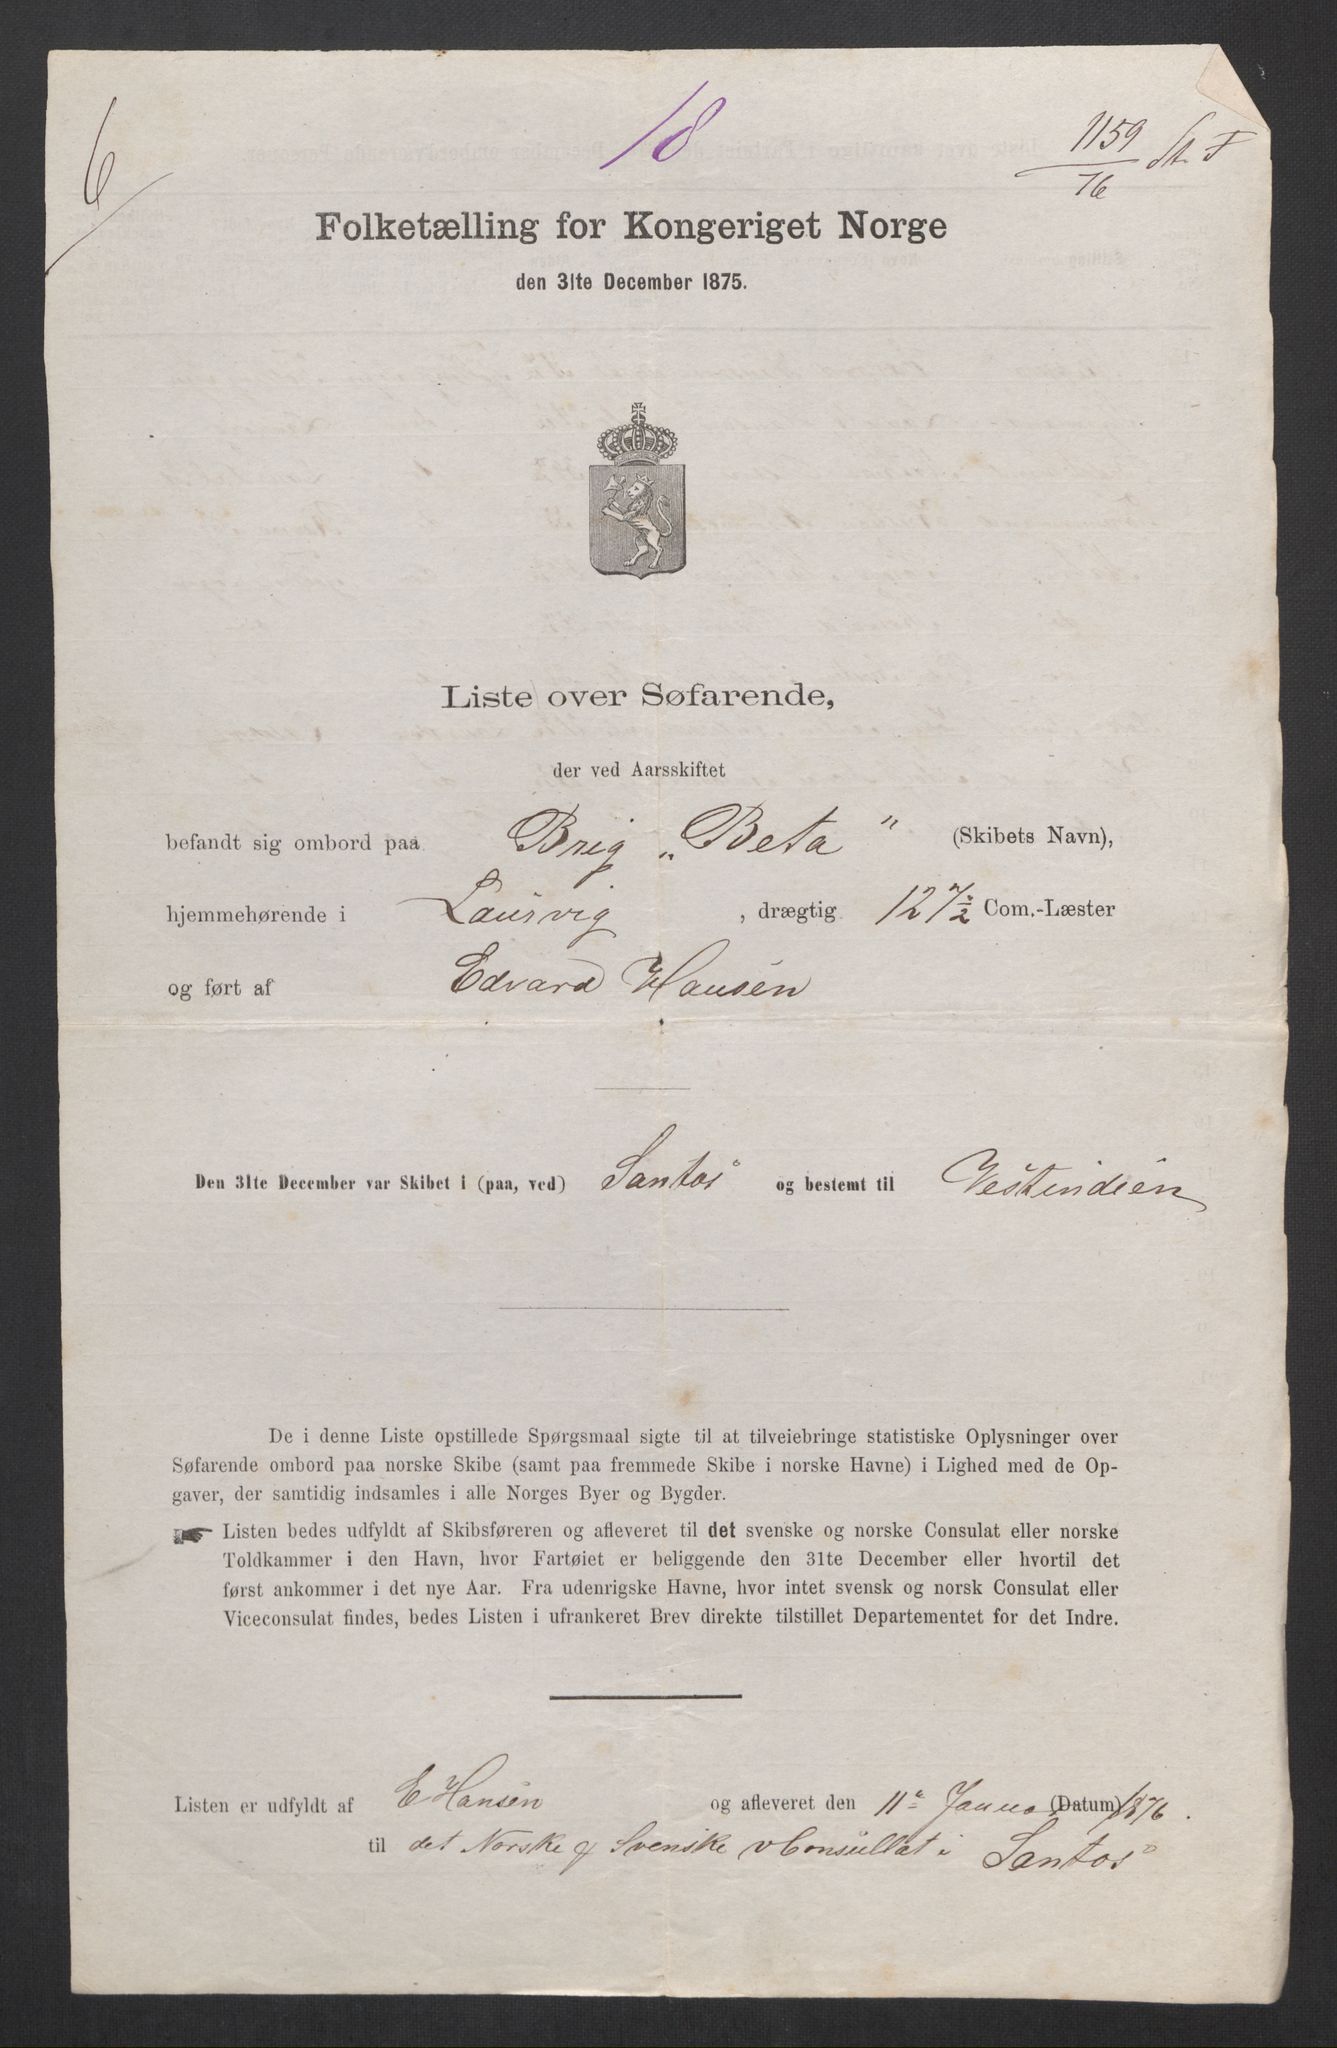 6
18
1159
76
St. F
Folketælling for Kongeriget Norge
den 31te December 1875.
Liste over Søfarende,
der ved Aarsskiftet
befandt sig ombord paa Brig „Beta" (Skibets Navn),
hjemmehørende i Laurvig , drægtig 127½ Com.-Læster
og ført af Edvard Hansen
Den 31te December var Skibet i (paa, ved) Santos og bestemt til Vestindien
De i denne Liste opstillede Spørgsmaal sigte til at tilveiebringe statistiske Oplysninger over
Søfarende ombord paa norske Skibe (samt paa fremmede Skibe i norske Havne) i Lighed med de Op-
gaver, der samtidig indsamles i alle Norges Byer og Bygder.
Listen bedes udfyldt af Skibsføreren og afleveret til det svenske og norske Consulat eller norske
Toldkammer i den Havn, hvor Fartøiet er beliggende den 31te December eller hvortil det
først ankommer i det nye Aar. Fra udenrigske Havne, hvor intet svensk og norsk Consulat eller
Viceconsulat findes, bedes Listen i ufrankeret Brev direkte tilstillet Departementet for det Indre.
Listen er udfyldt af E Hansen og afleveret den 11e (Datum) 1876.
til det Norske & Svenske v Consullat i Santos